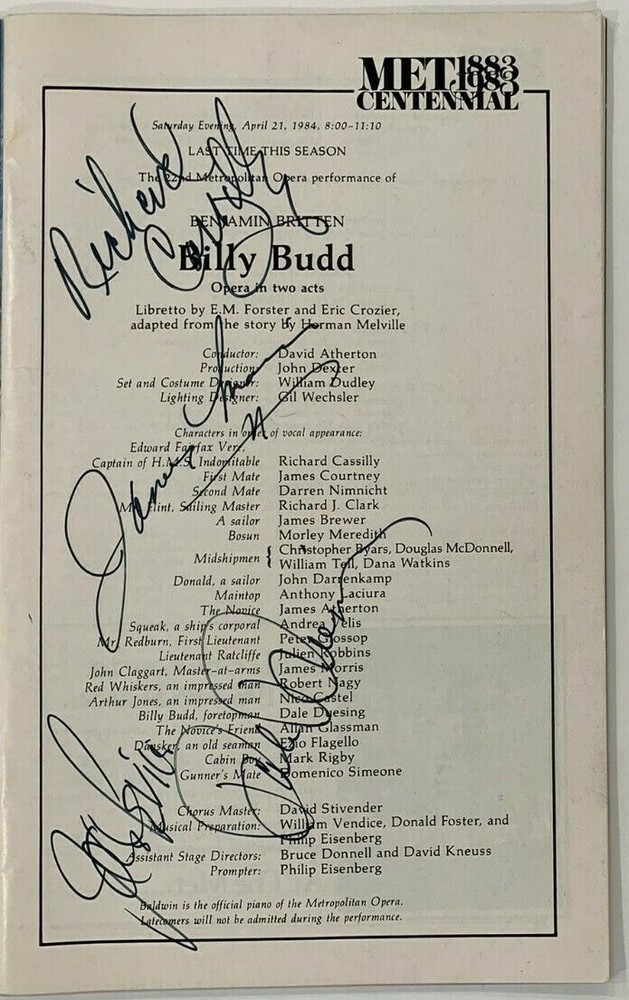 MET 1883
1983
CENTENNIAL
Saturday Evening, April 21, 1984, 8:00–11:10
LAST TIME THIS SEASON
The 22nd Metropolitan Opera performance of
BENJAMIN BRITTEN
Billy Budd
Opera in two acts
Libretto by E.M. Forster and Eric Crozier,
adapted from the story by Herman Melville
Conductor: David Atherton
Production: John Dexter
Set and Costume Designer: William Dudley
Lighting Designer: Gil Wechsler
Characters in order of vocal appearance:
Edward Fairfax Vere,
Captain of H.M.S. Indomitable Richard Cassilly
First Mate James Courtney
Second Mate Darren Nimnicht
Mr. Flint, Sailing Master Richard J. Clark
A sailor James Brewer
Bosun Morley Meredith
Midshipmen { Christopher Byars, Douglas McDonnell,
William Tell, Dana Watkins
Donald, a sailor John Darrenkamp
Maintop Anthony Laciura
The Novice James Atherton
Squeak, a ship's corporal Andrea Velis
Mr. Redburn, First Lieutenant Peter Glossop
Lieutenant Ratcliffe Julien Robbins
John Claggart, Master-at-arms James Morris
Red Whiskers, an impressed man Robert Nagy
Arthur Jones, an impressed man Nico Castel
Billy Budd, foretopman Dale Duesing
The Novice's Friend Allan Glassman
Dansker, an old seaman Ezio Flagello
Cabin Boy Mark Rigby
Gunner's Mate Domenico Simeone
Chorus Master: David Stivender
Musical Preparation: William Vendice, Donald Foster, and
Philip Eisenberg
Assistant Stage Directors: Bruce Donnell and David Kneuss
Prompter: Philip Eisenberg
Baldwin is the official piano of the Metropolitan Opera.
Latecomers will not be admitted during the performance.
Richard
Cassilly
James